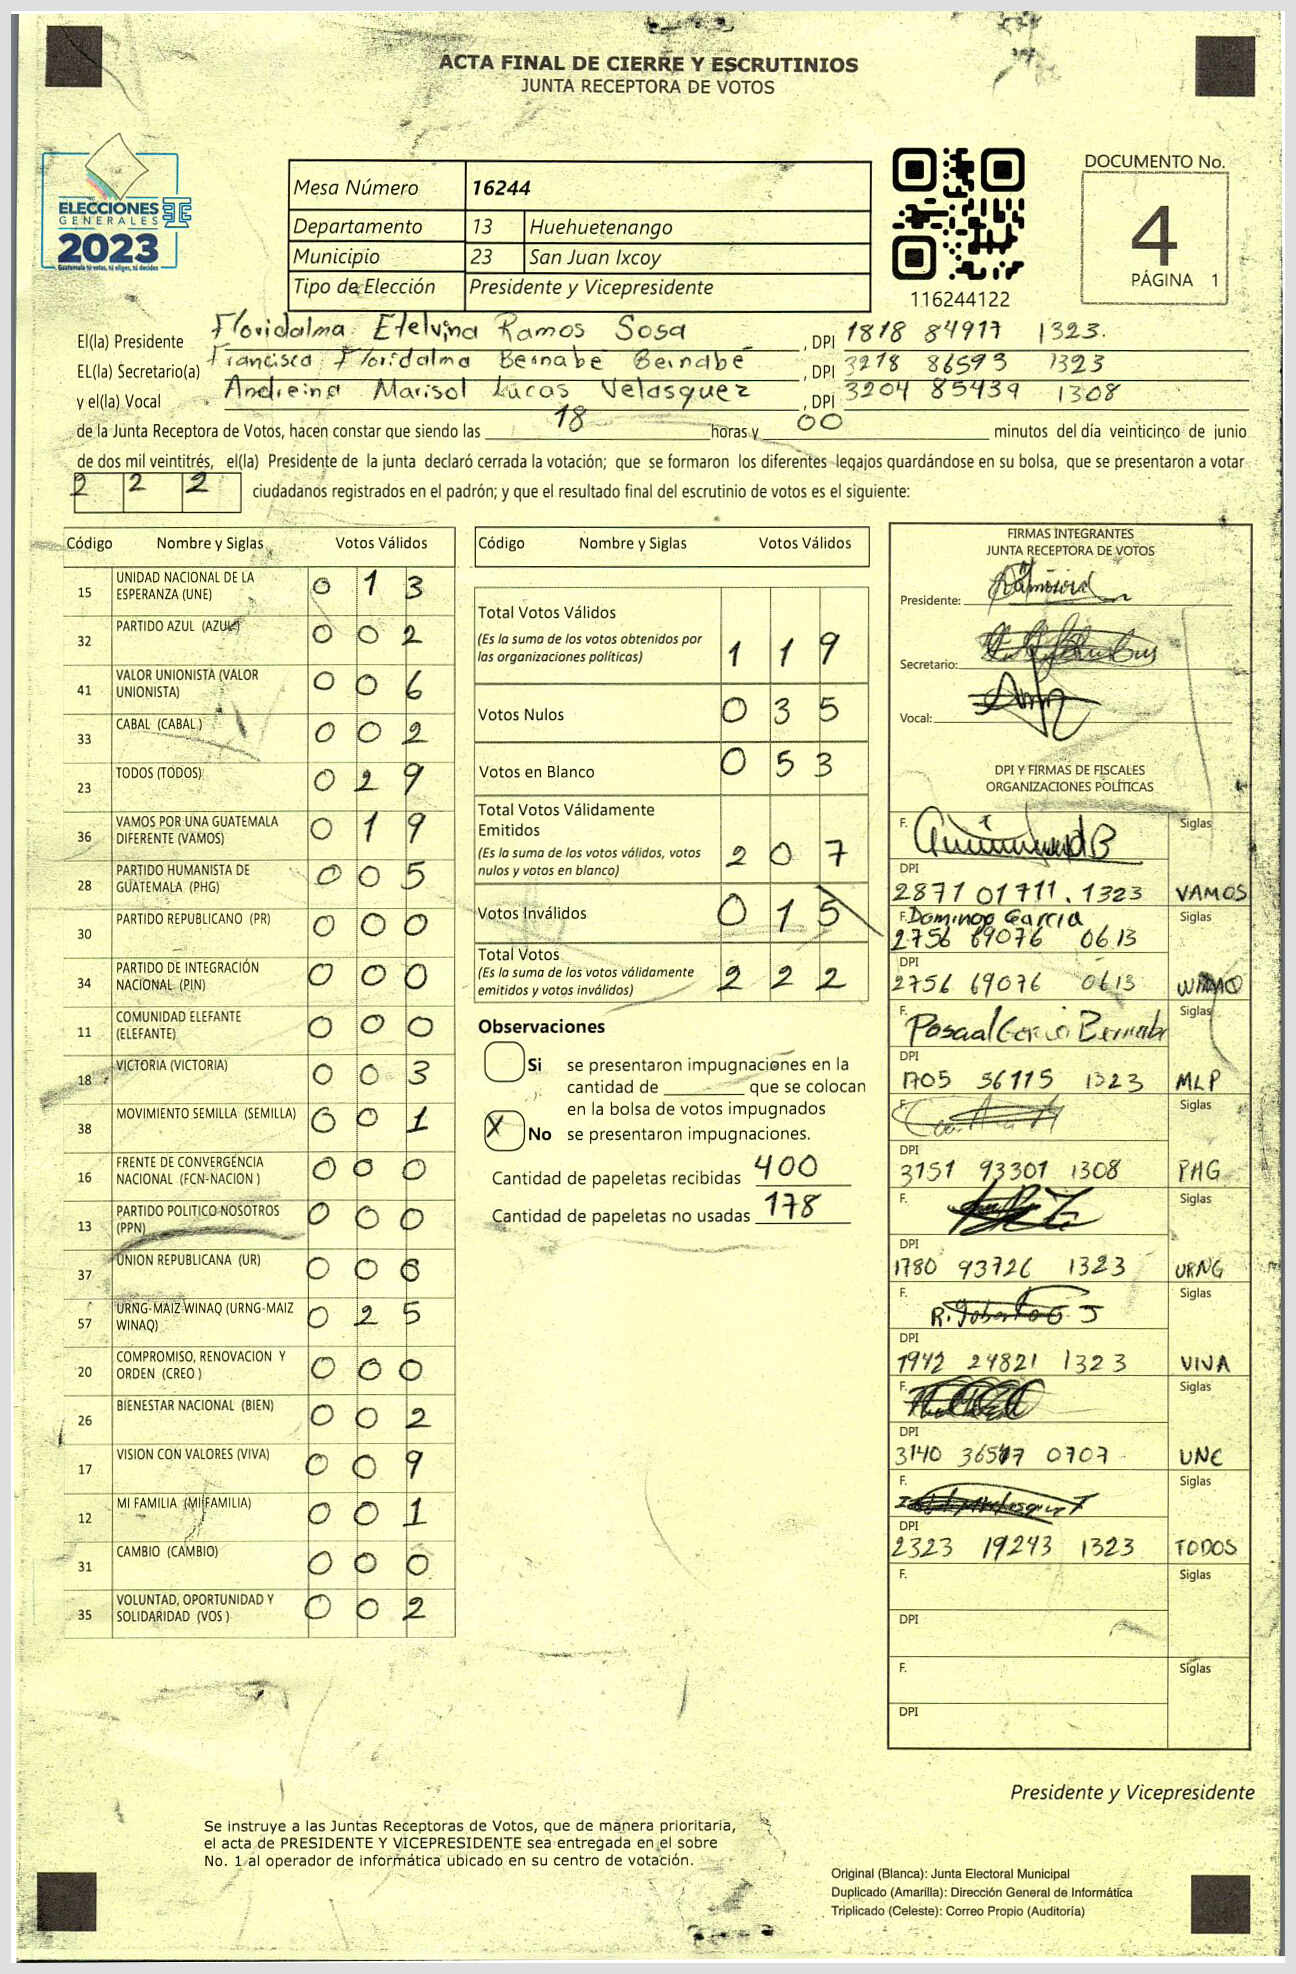 ACTA FINAL DE CIERRE Y ESCRUTINIOS
JUNTA RECEPTORA DE VOTOS
ELECCIONES
GENERALES
2023
Guatemala tú votas, tú eliges, tú decides
Mesa Número 16244
Departamento 13 Huehuetenango
Municipio 23 San Juan Ixcoy
Tipo de Elección Presidente y Vicepresidente
116244122
DOCUMENTO No.
4
PÁGINA 1
El(la) Presidente Floridalma Etelvina Ramos Sosa , DPI 1818 84917 1323.
EL(la) Secretario(a) Francisca Floridalma Bernabé Bernabé , DPI 3278 86593 1323
y el(la) Vocal Andreina Marisol Lucas Velasquez , DPI 3204 85439 1308
de la Junta Receptora de Votos, hacen constar que siendo las 18 horas y 00 minutos del día veinticinco de junio
de dos mil veintitrés, el(la) Presidente de la junta declaró cerrada la votación; que se formaron los diferentes legajos guardándose en su bolsa, que se presentaron a votar
2 2 2 ciudadanos registrados en el padrón; y que el resultado final del escrutinio de votos es el siguiente:
Código Nombre y Siglas Votos Válidos
15 UNIDAD NACIONAL DE LA ESPERANZA (UNE) 0 1 3
32 PARTIDO AZUL (AZUL) 0 0 2
41 VALOR UNIONISTA (VALOR UNIONISTA) 0 0 6
33 CABAL (CABAL) 0 0 2
23 TODOS (TODOS) 0 2 9
36 VAMOS POR UNA GUATEMALA DIFERENTE (VAMOS) 0 1 9
28 PARTIDO HUMANISTA DE GUATEMALA (PHG) 0 0 5
30 PARTIDO REPUBLICANO (PR) 0 0 0
34 PARTIDO DE INTEGRACIÓN NACIONAL (PIN) 0 0 0
11 COMUNIDAD ELEFANTE (ELEFANTE) 0 0 0
18 VICTORIA (VICTORIA) 0 0 3
38 MOVIMIENTO SEMILLA (SEMILLA) 0 0 1
16 FRENTE DE CONVERGENCIA NACIONAL (FCN-NACION) 0 0 0
13 PARTIDO POLITICO NOSOTROS (PPN) 0 0 0
37 UNION REPUBLICANA (UR) 0 0
57 URNG-MAIZ WINAQ (URNG-MAIZ WINAQ) 0 2 5
20 COMPROMISO, RENOVACION Y ORDEN (CREO) 0 0 0
26 BIENESTAR NACIONAL (BIEN) 0 0 2
17 VISION CON VALORES (VIVA) 0 0 9
12 MI FAMILIA (MI FAMILIA) 0 0 1
31 CAMBIO (CAMBIO) 0 0 0
35 VOLUNTAD, OPORTUNIDAD Y SOLIDARIDAD (VOS) 0 0 2
Código Nombre y Siglas Votos Válidos
Total Votos Válidos 1 1 9
(Es la suma de los votos obtenidos por
las organizaciones políticas)
Votos Nulos 0 3 5
Votos en Blanco 0 5 3
Total Votos Válidamente
Emitidos
(Es la suma de los votos válidos, votos
nulos y votos en blanco) 2 0 7
Votos Inválidos 0 1 5
Total Votos
(Es la suma de los votos válidamente
emitidos y votos inválidos) 2 2 2
Observaciones
Si se presentaron impugnaciones en la
cantidad de ________ que se colocan
en la bolsa de votos impugnados
X No se presentaron impugnaciones.
Cantidad de papeletas recibidas 400
Cantidad de papeletas no usadas 178
FIRMAS INTEGRANTES
JUNTA RECEPTORA DE VOTOS
Presidente:
Secretario:
Vocal:
DPI Y FIRMAS DE FISCALES
ORGANIZACIONES POLÍTICAS
F. Siglas
DPI
2871 01711.1323 VAMOS
F. Domingo Garcia Siglas
2756 69076 0613
DPI
2756 69076 0613
F. Siglas
DPI
1705 56115 1323 MLP
F. Siglas
DPI
3151 93301 1308 PHG
F. Siglas
DPI
1780 93726 1323 URNG
F. Siglas
DPI
1942 24821 1323 VIVA
F. Siglas
DPI
3140 0707 UNE
F. Siglas
DPI
2323 19243 1323 TODOS
F. Siglas
DPI
F. Siglas
DPI
Presidente y Vicepresidente
Se instruye a las Juntas Receptoras de Votos, que de manera prioritaria,
el acta de PRESIDENTE Y VICEPRESIDENTE sea entregada en el sobre
No. 1 al operador de informática ubicado en su centro de votación.
Original (Blanca): Junta Electoral Municipal
Duplicado (Amarilla): Dirección General de Informática
Triplicado (Celeste): Correo Propio (Auditoría)